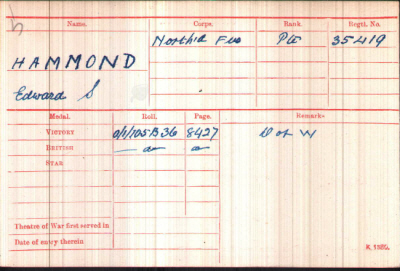 Name. Corps. Rank. Regtl. No.
HAMMOND Northd Fus Pte 35419
Edward S
Medal. Roll. Page. Remarks
VICTORY O/1/105B36 8427 D of W
BRITISH — do — do
STAR
Theatre of War first served in
Date of entry therein
K. 1380.